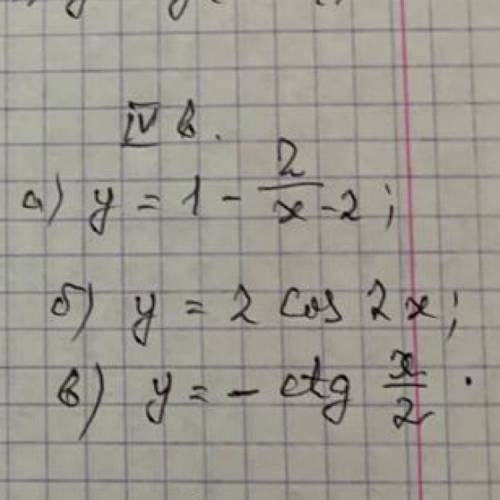 IV в.
а) y = 1 - 2/(x - 2);
б) y = 2 cos 2x;
в) y = - ctg x/2.